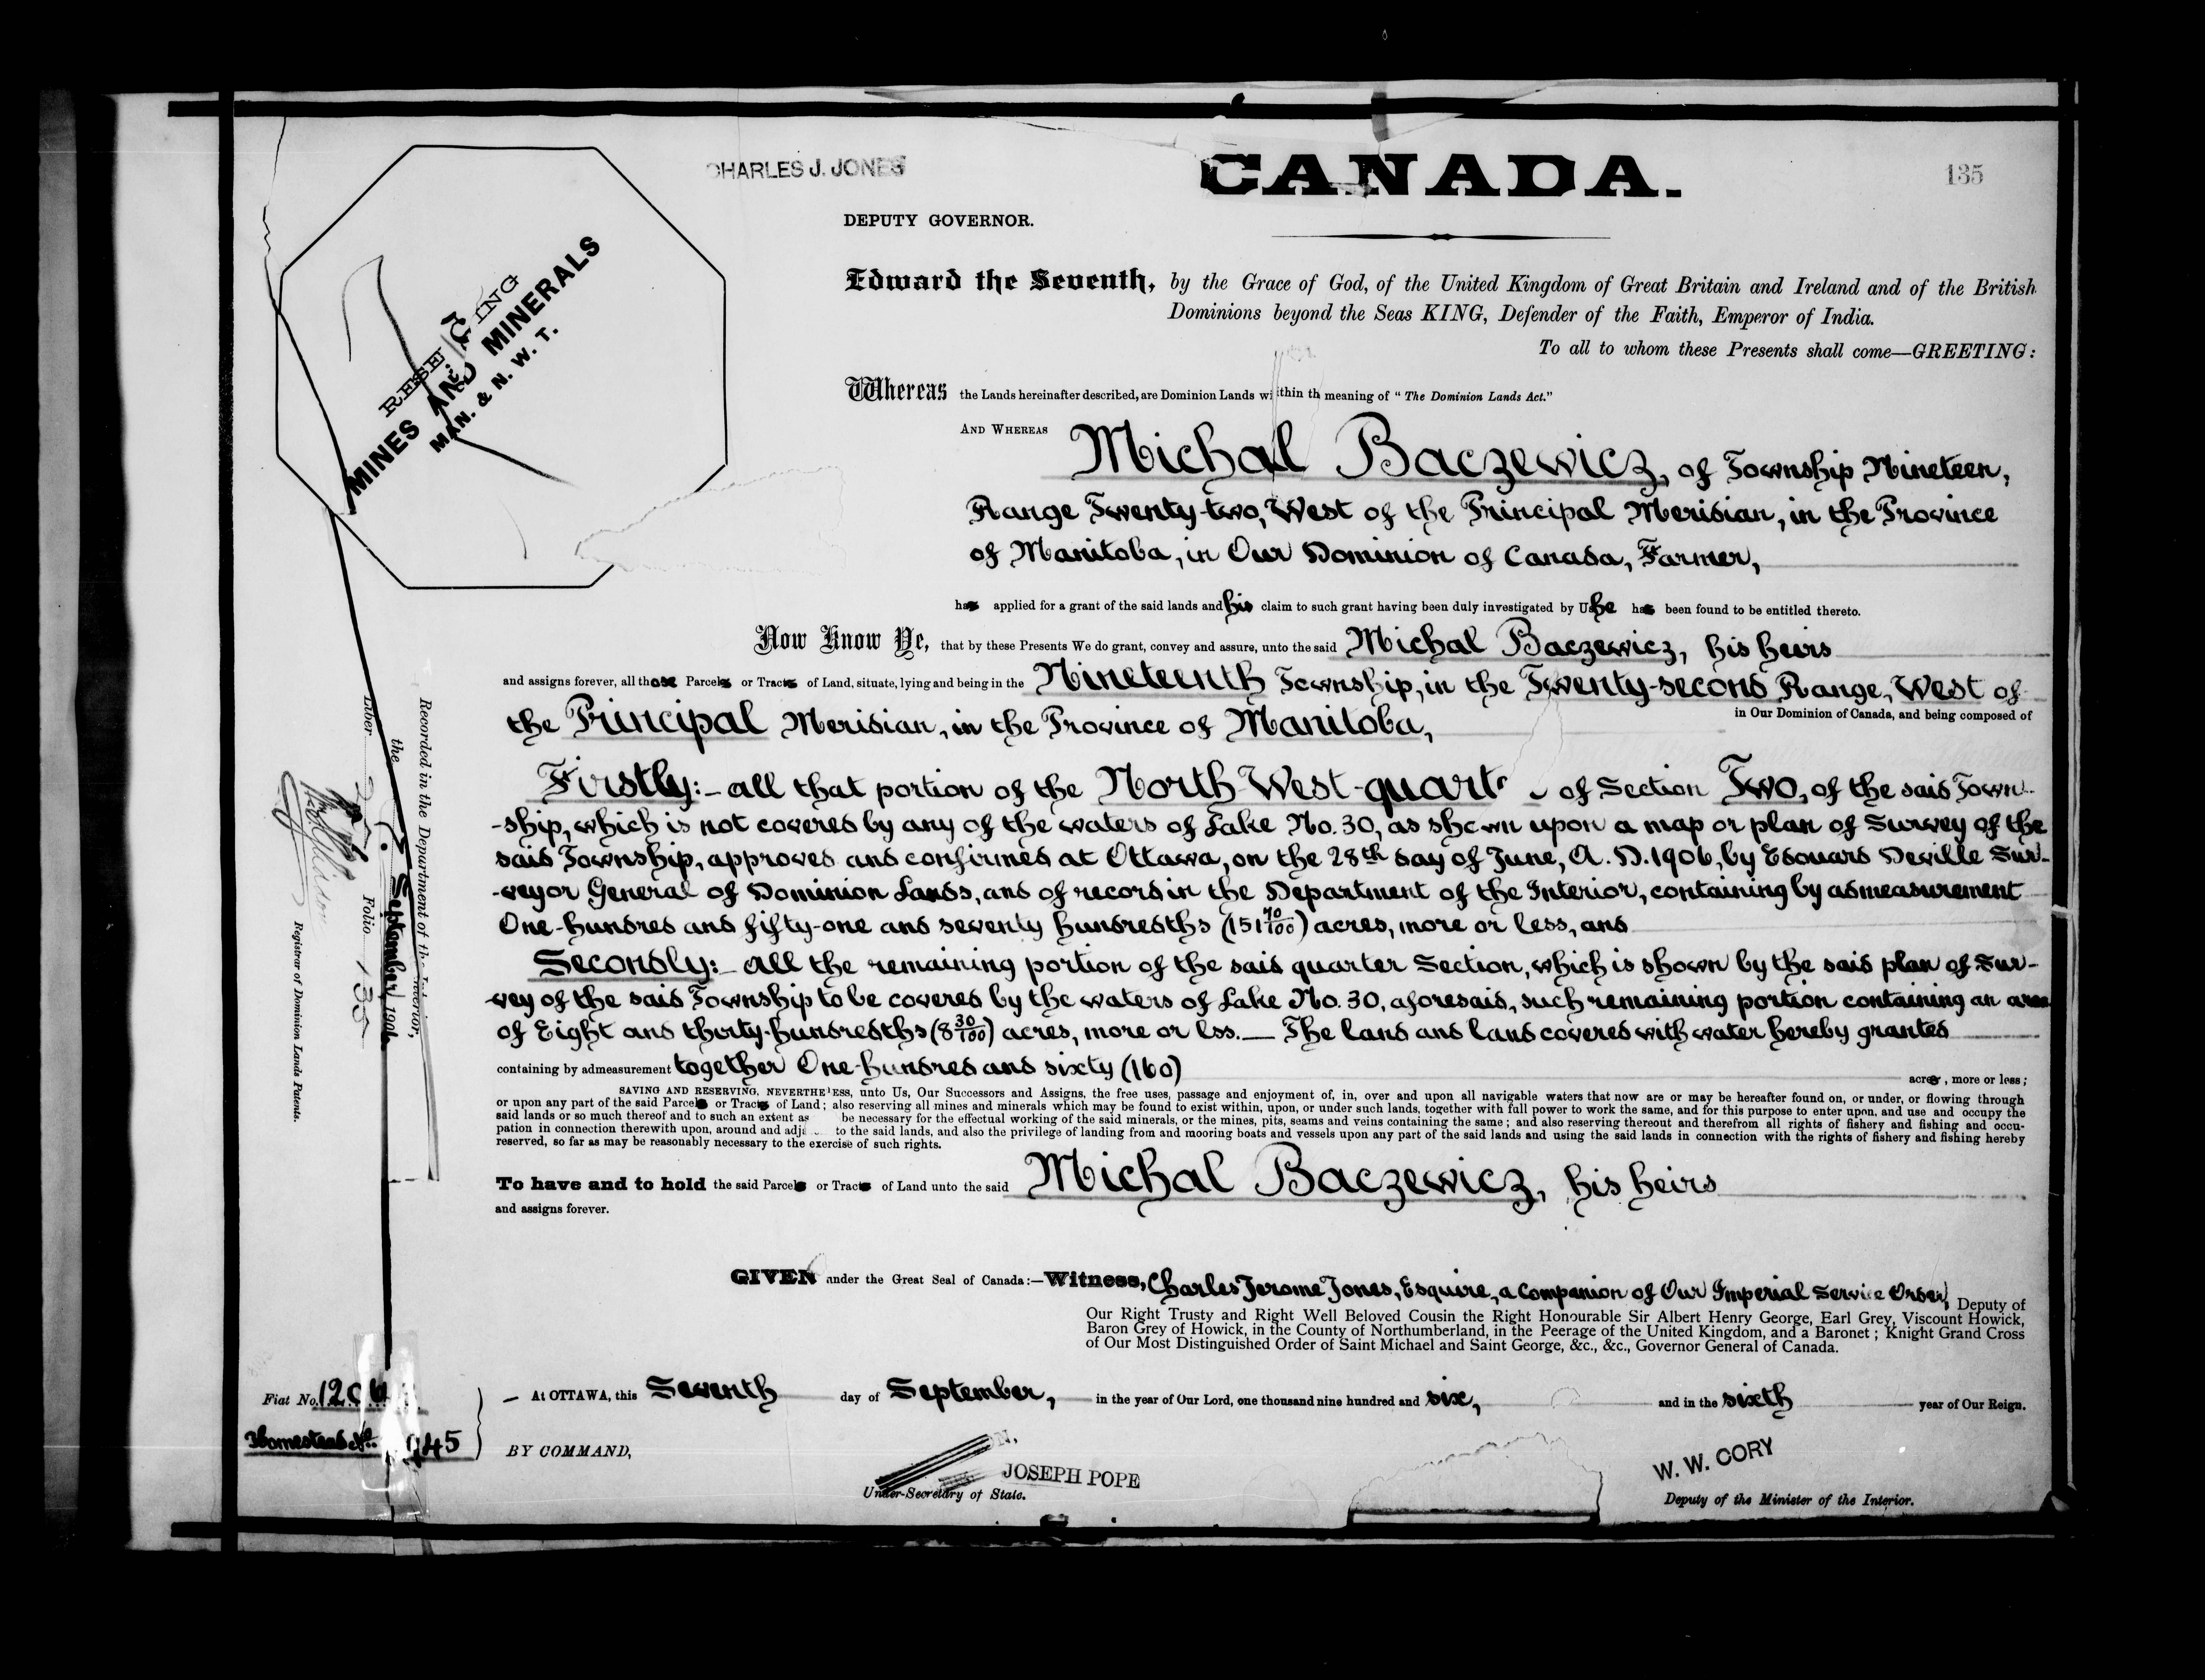 CHARLES J. JONES
CANADA.
135
DEPUTY GOVERNOR.
RESERVING
MINES AND MINERALS
MAN. & N. W. T.
Edward the Seventh, by the Grace of God, of the United Kingdom of Great Britain and Ireland and of the British
Dominions beyond the Seas KING, Defender of the Faith, Emperor of India.
To all to whom these Presents shall come—GREETING:
Whereas the Lands hereinafter described, are Dominion Lands within th meaning of "The Dominion Lands Act."
AND WHEREAS Michal Baczewicz, of Township Nineteen,
Range Twenty-two, West of the Principal Meridian, in the Province
of Manitoba, in Our Dominion of Canada, Farmer,
has applied for a grant of the said lands and his claim to such grant having been duly investigated by Us he has been found to be entitled thereto.
Now Know Ye, that by these Presents We do grant, convey and assure, unto the said Michal Baczewicz, his heirs
and assigns forever, all those Parcels or Tracts of Land, situate, lying and being in the Nineteenth Township, in the Twenty-second Range, West of
the Principal Meridian, in the Province of Manitoba, in Our Dominion of Canada, and being composed of
Firstly:- all that portion of the North-West-quart of Section Two, of the said Town-
-ship, which is not covered by any of the waters of Lake No. 30, as shown upon a map or plan of Survey of the
said Township, approved and confirmed at Ottawa, on the 28th day of June, A. D. 1906, by Edouard Deville Sur-
-veyor General of Dominion Lands, and of record in the Department of the Interior, containing by admeasurement
One-hundred and fifty-one and seventy hundredths (151 70/100) acres, more or less, and
Secondly:- all the remaining portion of the said quarter Section, which is shown by the said plan of Sur-
-vey of the said Township to be covered by the waters of Lake No. 30, aforesaid, such remaining portion containing an area
of Eight and thirty-hundredths (8 30/100) acres, more or lss.— The land and land covered with water hereby granted
containing by admeasurement together One-hundred and sixty (160) acres, more or less;
SAVING AND RESERVING, NEVERTHELESS, unto Us, Our Successors and Assigns, the free uses, passage and enjoyment of, in, over and upon all navigable waters that now are or may be hereafter found on, or under, or flowing through
or upon any part of the said Parcels or Tracts of Land; also reserving all mines and minerals which may be found to exist within, upon, or under such lands, together with full power to work the same, and for this purpose to enter upon, and use and occupy the
said lands or so much thereof and to such an extent as be necessary for the effectual working of the said minerals, or the mines, pits, seams and veins containing the same; and also reserving thereout and therefrom all rights of fishery and fishing and occu-
pation in connection therewith upon, around and adj to the said lands, and also the privilege of landing from and mooring boats and vessels upon any part of the said lands and using the said lands in connection with the rights of fishery and fishing hereby
reserved, so far as may be reasonably necessary to the exercise of such rights.
To have and to hold the said Parcels or Tracts of Land unto the said Michal Baczewicz, his heirs
and assigns forever.
GIVEN under the Great Seal of Canada:—Witness, Charles Jerome Jones, Esquire, a Companion of Our Imperial Service Order, Deputy of
Our Right Trusty and Right Well Beloved Cousin the Right Honourable Sir Albert Henry George, Earl Grey, Viscount Howick,
Baron Grey of Howick, in the County of Northumberland, in the Peerage of the United Kingdom, and a Baronet; Knight Grand Cross
of Our Most Distinguished Order of Saint Michael and Saint George, &c., &c., Governor General of Canada.
— At OTTAWA, this Seventh day of September, in the year of Our Lord, one thousand nine hundred and six, and in the sixth year of Our Reign.
BY COMMAND,
JOSEPH POPE
Under-Secretary of State.
W. W. CORY
Deputy of the Minister of the Interior.
Recorded in the Department of the Interior,
the September, 1906
Liber Folio 135
Registrar of Dominion Lands Patents.
Fiat No.
Homestead No. 945